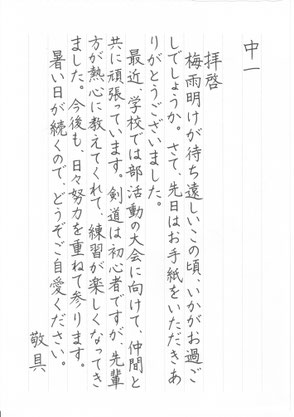 中一
拝啓
梅雨明けが待ち遠しいこの頃、いかがお過ご
しでしょうか。さて、先日はお手紙をいただきあ
りがとうございました。
最近、学校では部活動の大会に向けて、仲間と
共に頑張っています。剣道は初心者ですが、先輩
方が熱心に教えてくれて、練習が楽しくなってき
ました。今後も、日々努力を重ねて参ります。
暑い日が続くので、どうぞご自愛ください。
敬具